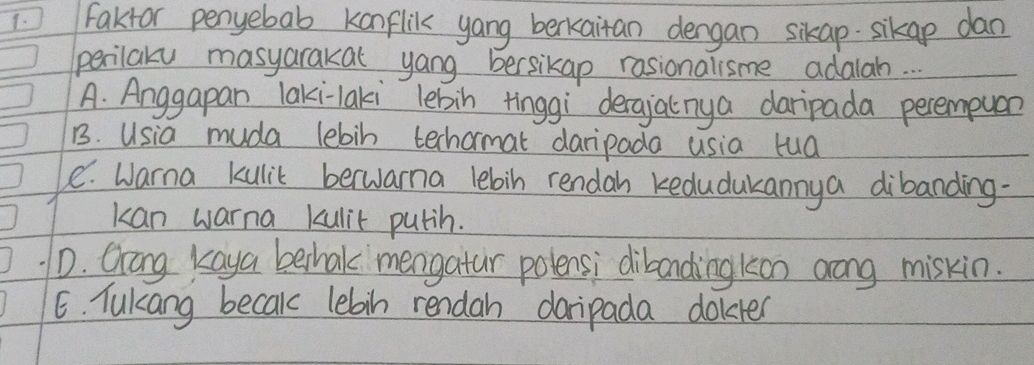 1. Faktor penyebab konflik yang berkaitan dengan sikap-sikap dan
perilaku masyarakat yang bersikap rasionalisme adalah...
A. Anggapan laki-laki lebih tinggi derajatnya daripada perempuan
B. Usia muda lebih terhormat daripada usia tua
C. Warna kulit berwarna lebih rendah kedudukannya dibanding-
kan warna kulit putih.
D. Orang kaya berhak mengatur potensi dibandingkan orang miskin.
E. Tukang becak lebih rendah daripada dokter